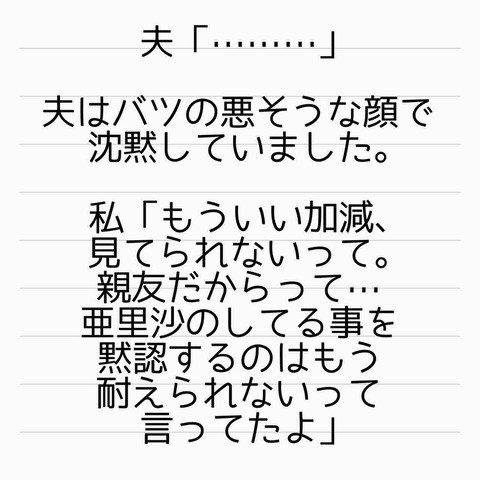 夫「………」
夫はバツの悪そうな顔で
沈黙していました。
私「もういい加減、
見てられないって。
親友だからって…
亜里沙のしてる事を
黙認するのはもう
耐えられないって
言ってたよ」